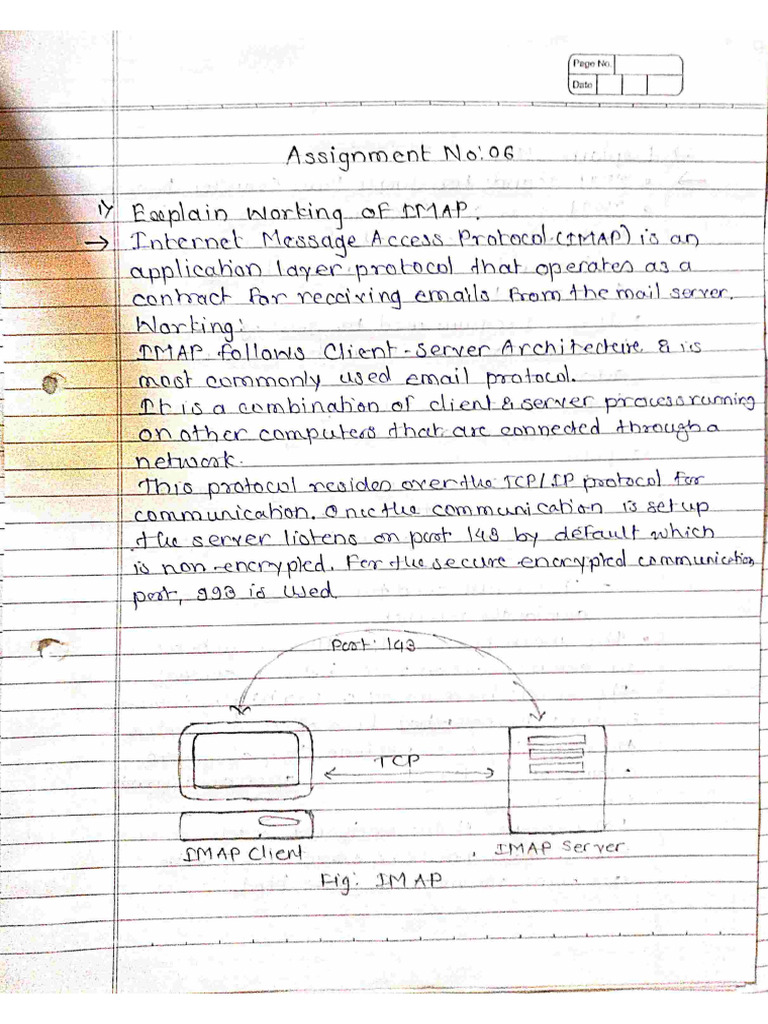 Page No.
Date
Assignment No:06
1) Explain Working of IMAP.
→ Internet Message Access Protocol (IMAP) is an
application layer protocol that operates as a
contract for receiving emails from the mail server.
Working:
IMAP follows Client-Server Architecture & is
most commonly used email protocol.
It is a combination of client & server process running
on other computers that are connected through a
network.
This protocol resides over the TCP/IP protocol for
communication. Once the communication is set up
the server listens on port 143 by default which
is non-encrypted. For the secure encrypted communication
port, 993 is used.
Port: 143
TCP
IMAP Client
IMAP Server
Fig: IMAP